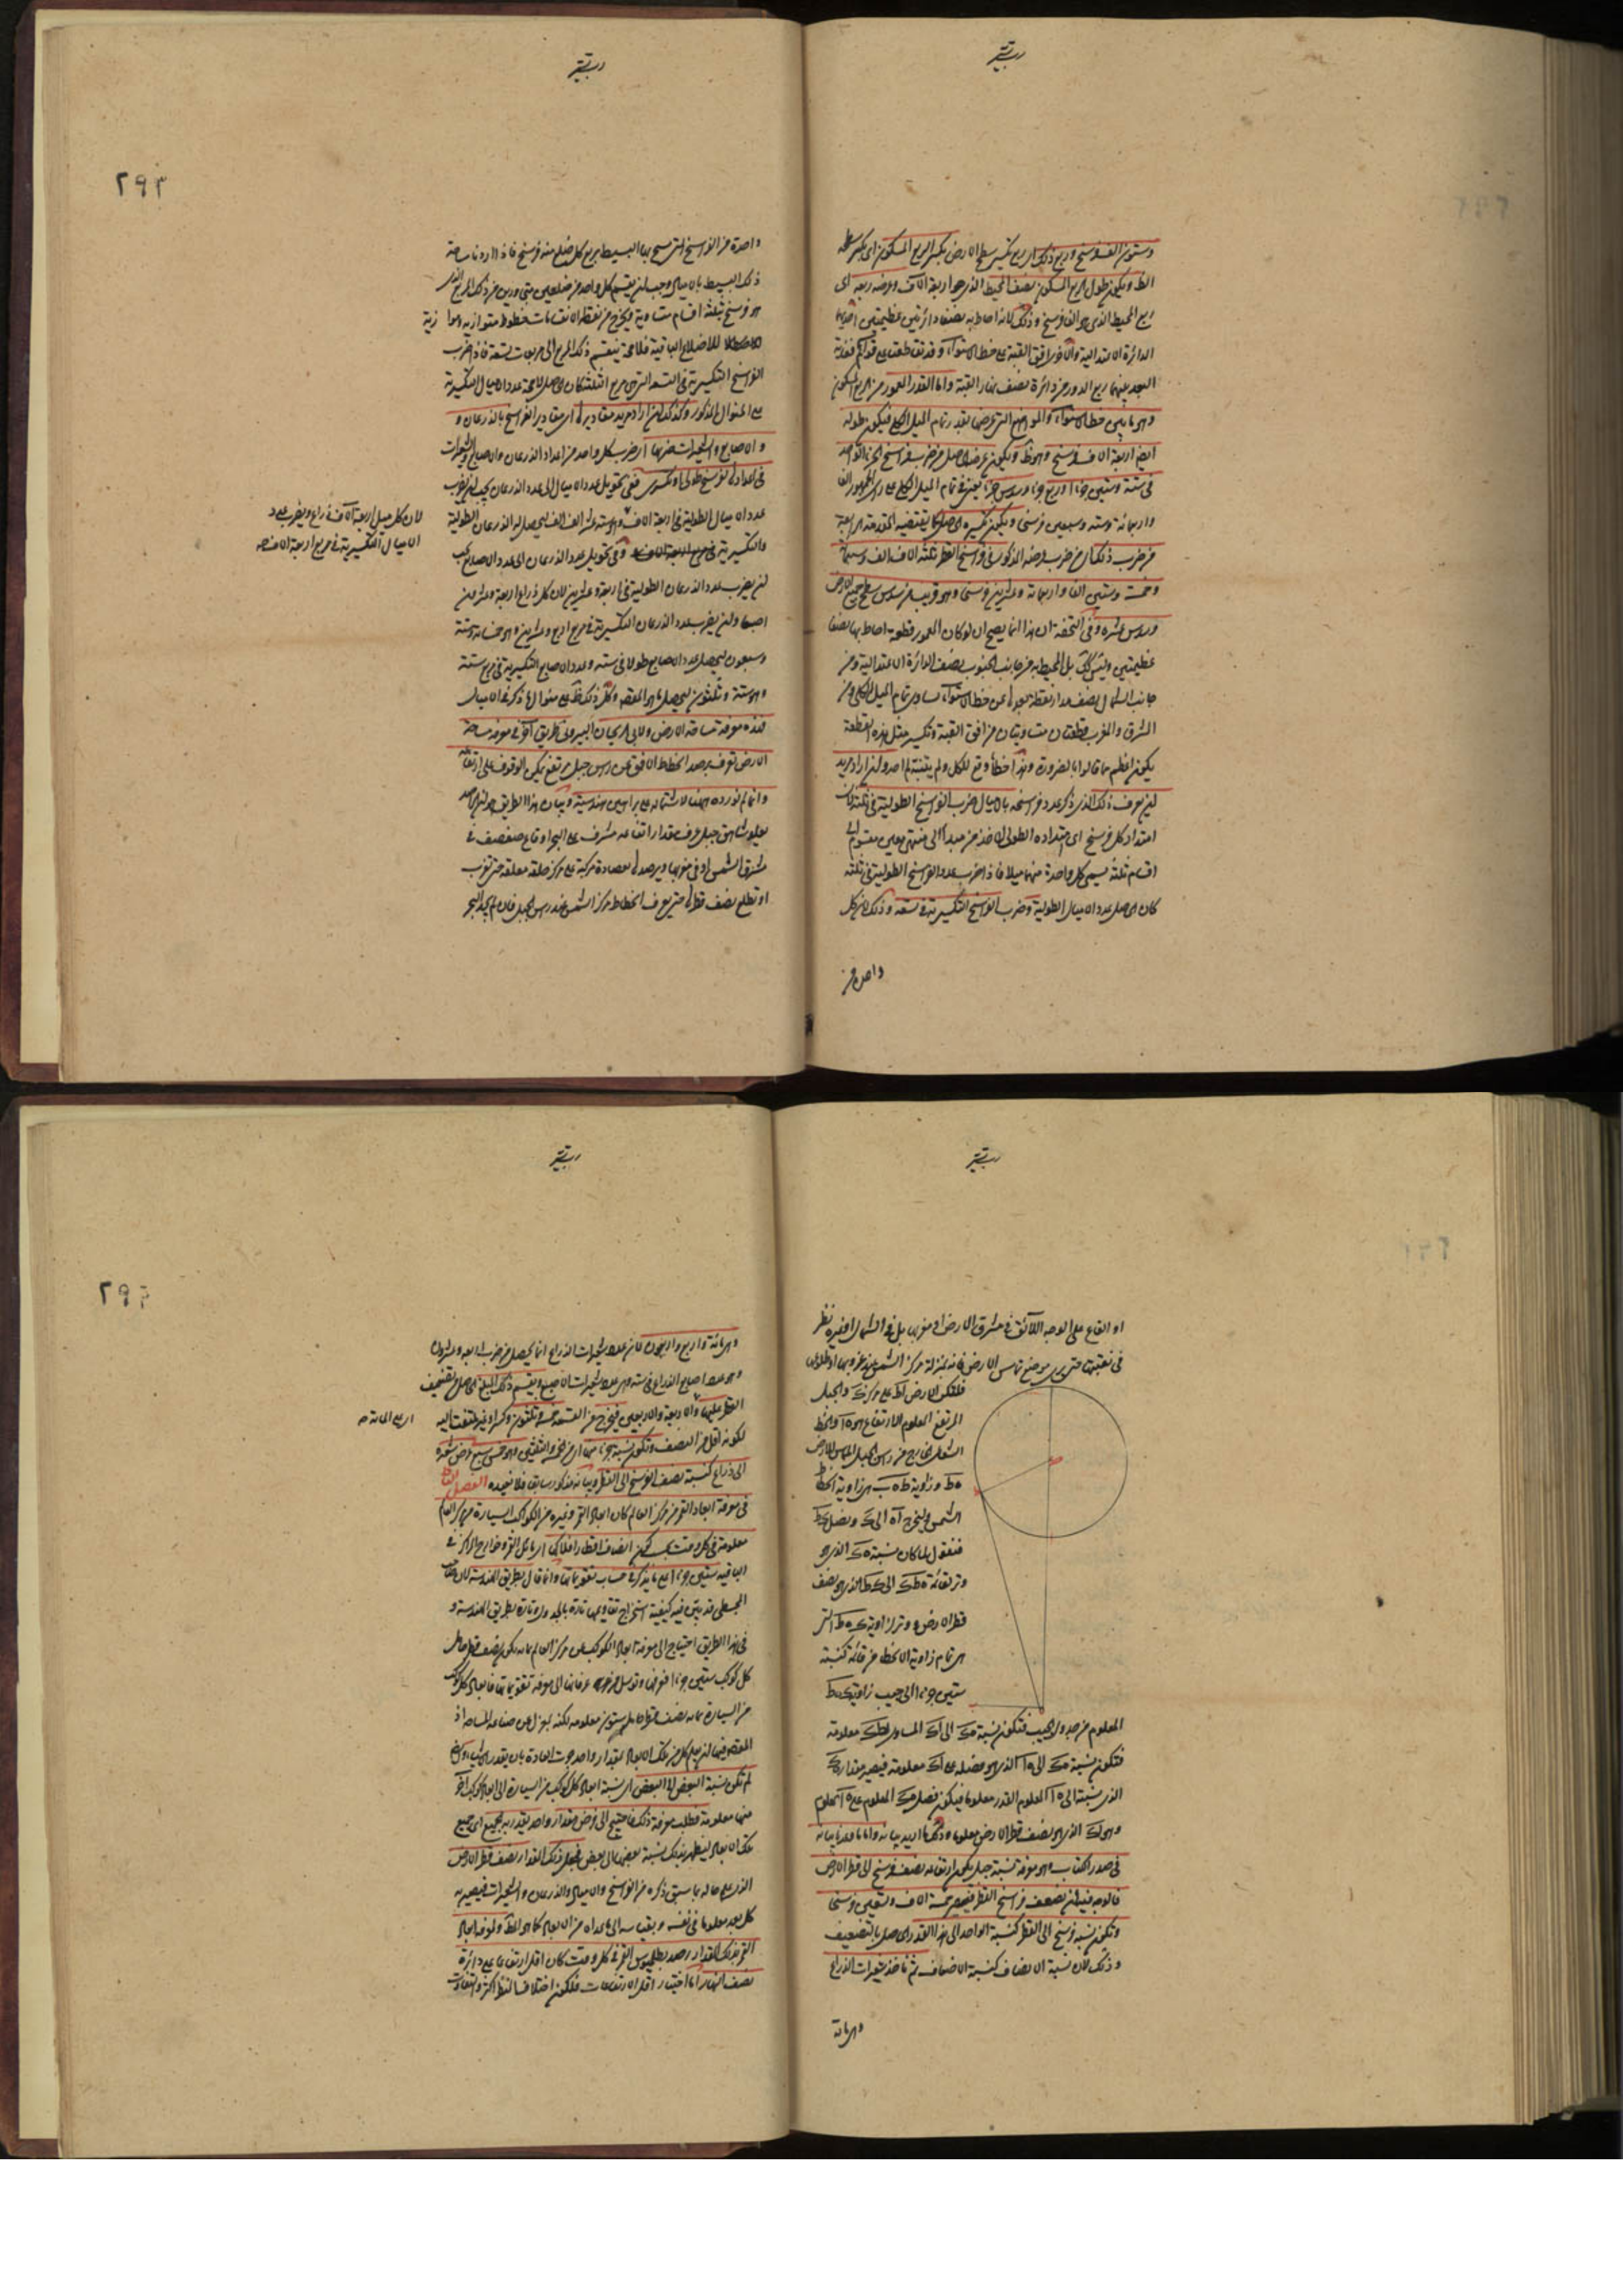 وستون الف فرسخ وربع ذلك اى ربع تكسير سطح الارض تكسير الربع المسكون اى تكسير سطحه
الظ ويكون طول الربع المسكون نصف المحيط الذى هو اربعة الاف وعرضه ربعه اى
ربع المحيط الذى هو الفا فرسخ وذلك لانه احاط به نصفا دائرتين عظيمتين احديهما
البعد بينهما ربع الدور من دائرة نصف نهار القبة واما القدر المعمور من الربع المسكون
وهو ما بين خط الاستواء والمواضع التى عرضها بقدر تمام الميل الكلى فيكون طوله
ايضا اربعة الاف فرسخ وهو ظ ويكون عرضه الحاصل من ضرب فراسخ الجزء الواحد
فى ستة وستين جزءا وربع جزء وسدس جزء يعنى تمام الميل الكلى على راى الجمهور الفا
واربعمائة وستة وسبعين فرسخا ويكون تكسيره الحاصل كما يقتضيه المقدمة الرابعة
من ضرب ذلك اى من ضرب عرضه المذكور فى فراسخ القطر ثلثة الاف الف وسبعمائة
وخمسة وستين الفا واربعمائة وعشرين فرسخا وهو قريب من سدس سطح جميع الارض
وسدس عشره وفى التحفة ان هذا انما يصح ان لو كان المعمور قطعة احاط بها نصفا
عظيمتين وليس كك بل المحيط به من جانب الجنوب نصف الدائرة الاعتدالية ومن
جانب الشمال نصف مدار نقطة بعدها عن خط الاستواء مساو لتمام الميل الكلى ومن
الشرق والمغرب قطعتان متساويتان من افق القبة وتكسير مثل هذه القطعة
يكون اعظم مما قالوا بالضرورة وهذا خطأ وقع للكل ولم يتنبه له احد ولمن اراد يريد
لمن يعرف ذلك الذى ذكر عدد فراسخه بالاميال ضرب الفراسخ الطولية فى ثلثة لان
امتداد كل فرسخ اى امتداده الطولى الاخذ من مبدأ الى منتهى معين مقسوم الى
اقسام ثلثة يسمى كل واحدة منها ميلا فاذا ضرب عدد الفراسخ الطولية فى ثلثة
كان الحاصل عدد الاميال الطولية وضرب الفراسخ التكسيرية فى تسعة وذلك لان كل
واحدة من
٢٩٣
واحدة من الفراسخ التى مسح بها البسيط مربع كل ضلع منه فرسخ فاذا اردنا مساحة
ذلك البسيط بالاميال وجب ان ينقسم كل واحد من ضلعين متجاورين من ذلك المربع الذى
هو فرسخ بثلثة اقسام متساوية ويخرج من نقط الانقسامات خطوط متوازية موازية
للاضلاع الباقية فلا محة ينقسم ذلك المربع الى مربعات تسعة فاذا ضرب
الفراسخ التكسيرية فى التسعة التى هى مربع الثلثة كان الحاصل لا محة عدد الاميال التكسيرية
على المنوال المذكور وكذلك لمن اراد يريد مقاديرها اى مقادير الفراسخ بالذرعان و
والاصابع والشعيرات ضربها اى ضرب كل واحد من اعداد الذرعان والاصابع والشعيرات
فى اعداد الفراسخ طولى او تكسيرى ففى تحويل عدد الاميال الى عدد الذرعان يجب ان يضرب
عدد الاميال الطولية فى اربعة الاف وفى ستة عشر الف الف ليحصل له الذرعان الطولية
والتكسيرية وفى تحويل عدد الذرعان الى عدد الاصابع يجب
لان كل ميل اربعة الاف ذراع ويضرب عدد
الاميال التكسيرية فى مربع اربعة الاف صح
ان يضرب عدد الذرعان الطولية فى اربعة وعشرين لان كل ذراع اربعة وعشرون
اصبعا وان يضرب عدد الذرعان التكسيرية فى مربع اربع وعشرين وهو خمسمائة وستة
وسبعون ليحصل عدد الاصابع طولا فى ستة وعدد الاصابع التكسيرية فى مربع ستة
وهو ستة وثلثون ليحصل ما هو المقصد وكل ذلك ظ على منوال ما ذكر فى الاميال
فهذه معرفة مساحة الارض ولابى الريحان البيرونى طريق اخر فى معرفة مساحة
الارض تعرف برصد انحطاط الافق عن رأس جبل مرتفع يمكن الوقوف على ارتفاعه
وانما لم نورده ههنا لاشتماله على براهين هندسية وبيان هذا الطريق
يعلو شاهق جبل عرف مقدار ارتفاعه مشرف على البحر او قاع صفصف فى
مشرق الشمس او فى مغربها ويرصدها بعضادة مركبة على مركز حلقة معلقة حتى تغرب
او تطلع نصف قطرها حتى يعرف انحطاط مركز الشمس عند رأس الجبل فان لم يجد البحر
او القاع على الوجه اللائق فى مشرق الارض او مغربها بل فى الشمال او غيره نظر
فى ثقبتيها حتى يرى موضع تماس الارض فانه بمنزلة مركز الشمس عند غروبها او طلوعها
فليكن الارض اط على مركز ك والجبل
المرتفع المعلوم الارتفاع ه ا والخط
الشعاعى الخارج من رأس الجبل المماس للارض
ه ط وزاوية ط ه ب هى زاوية انحطاط
الشمس وليخرج اه الى ك ونصل ك ط
فنقول لما كان نسبة ه ك الذى هو
وتر لقائمة ه ط ك الى ك ط الذى هو نصف
قطر الارض ووتر لزاوية ك ه ط التى
هى تمام زاوية الانحطاط من قائمة كنسبة
ستين جزءا الى جيب زاوية ك ه ط
المعلوم من جدول الجيب فتكون نسبة ه ك الى اك المساوى لط ك معلومة
فتكون نسبة ه ك الى ه ا الذى هو فضله على اك معلومة فيصير مقدار ه ك
الذى نسبة الى ه ا المعلوم القدر معلوما فيكون فضل ه ك المعلوم على ه ا المعلوم
وهو ا ك الذى هو نصف قطر الارض معلوما وذلك ما اريد بيانه واما ما وعدنا بيانه
فى صدر الكتاب وهو معرفة نسبة جبل يكون ارتفاعه نصف فرسخ الى قطر الارض
فالوجه فيه ان يضعف فراسخ القطر فيصير خمسة الاف وتسعين فرسخا
وتكون نسبة نصف فرسخ الى القطر كنسبة الواحد الى هذا القدر الحاصل بالتضعيف
وذلك لان نسبة الانصاف كنسبة الاضعاف ثم تاخذ شعيرات الذراع
وهى مائة
٢٩٤
وهى مائة واربع واربعون لان عدد شعيرات الذراع انما يحصل من ضرب اربعة وعشرون
وهو عدد اصابع الذراع فى ستة وهى عدد شعيرات الاصبع ويقسم ذلك المبلغ الحاصل من تضعيف
القطر عليها والاربعة والاربعين فيخرج من القسمة خمسة وثلثون وكسرا وغير ملتفت اليه
اى على المائة صح
لكونه اقل من النصف وتكون نسبة جزء منها اى من الخمسة والثلثين وهو خمس سبع عرض شعيرة
الى ذراع كنسبة نصف الفرسخ الى القطر وبيانه مذكور سابق فلا نعيده الفصل الثانى
فى معرفة ابعاد القمر من مركز العالم كان ابعاد القمر وغيره من الكواكب السيارة من مركز العالم
معلومة فى كل وقت بحسب كون انصاف اقطار افلاكها اى مائل القمر وخوارج المراكز فى
الباقية ستين جزءا على ما يذكر فى حساب تقويماتها وانما قال بطريق الهندسة لان صاحب
المجسطى قد بين فيه كيفية استخراج تقاويمها تارة بالجدول وتارة بطريق الهندسة و
فى هذا الطريق احتياج الى معرفة ابعاد الكواكب عن مركز العالم بما به يكون نصف قطر حامل
كل كوكب ستين جزءا فعرفها وتوسل من عرفانها الى معرفة تقويماتها فابعاد كل كوكب
من السيارة بما به نصف قطر حامل ستون معلومة لكنه بمعزل عن صناعة المساحة اذ
المقصود فيها ان يعلم كل من تلك الابعاد بمقدار واحد جرت العادة بان يقدر به الاشياء واذا
لم تكن نسبة البعض الى البعض اى نسبة ابعاد كل كوكب من السيارة الى ابعاد كوكب اخر
منها معلومة فطلب معرفة ذلك فاحتيج الى فرض مقدار واحد يقدر به الجميع اى جميع
تلك الابعاد ليظهر بذلك نسبة بعضها الى بعض فجعل ذلك المقدار نصف قطر الارض
الذى علم حاله بما سبق ذكره من الفراسخ والاميال والذرعان والشعيرات فيصير به
كل بعد معلوما فى نفسه وبقياسه الى ما عداه من الابعاد كما هو الظ ولمعرفة ابعاد
القمر بذلك المقدار رصد بطلميوس القمر فى كل وقت كان اقل ارتفاعا على دائرة
نصف النهار انما اختيار اقل الارتفاعات فلكون اختلاف المنظر اكثر والتفاوت